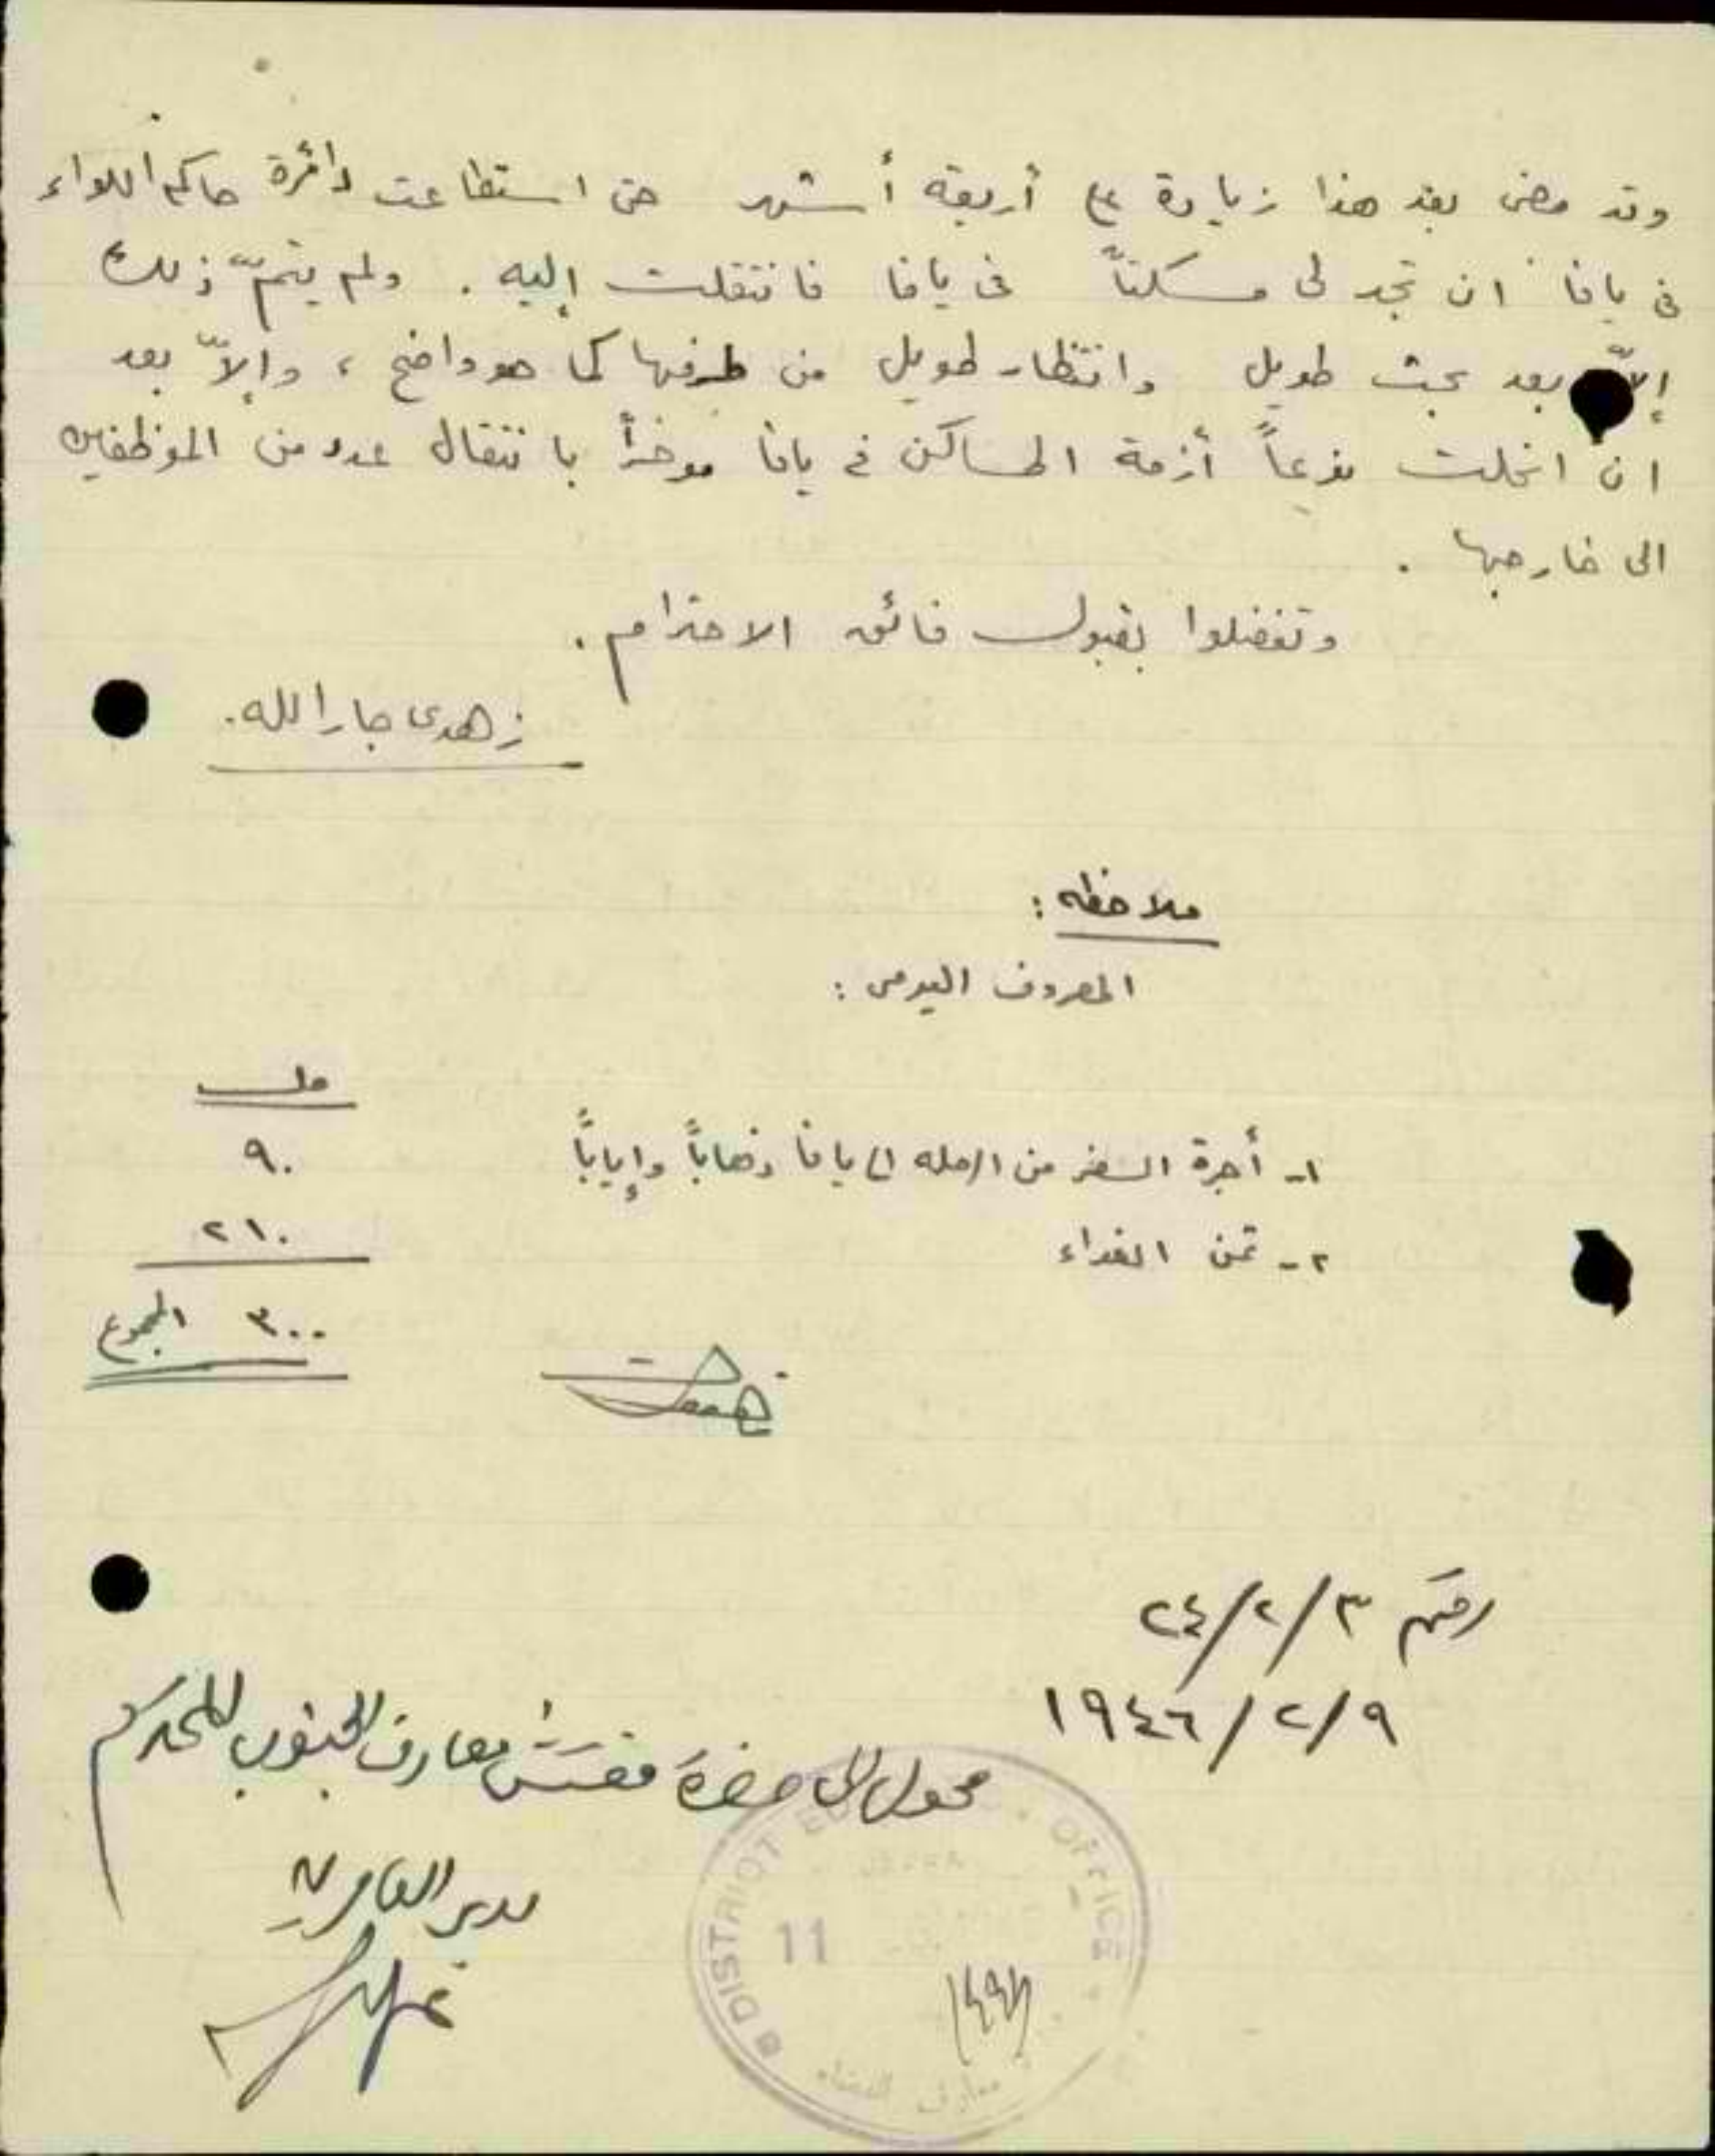 وقد مضى بعد هذا زيادة على أربعة أشهر حتى استطاعت دائرة حاكم اللواء
في يافا ان تجد لي مسكناً في يافا فانتقلت إليه . ولم يتمّ ذلك
إلاّ بعد بحث طويل وانتظار طويل من طرفها كما هو واضح ، وإلاّ بعد
ان انحلت نوعاً أزمة المساكن في يافا مؤخراً بانتقال عدد من الموظفين
الى خارجها .
وتفضلوا بقبول فائق الاحترام .
زهدي جارالله .
ملاحظه :
المصروف اليومي :
مل
١- أجرة السفر من الرمله الى يافا ذهاباً وإياباً ٩٠
٢- ثمن الغداء ٢١٠
٣٠٠ المجموع
رقم ٢٤/٢/٣
١٩٤٦/٢/٩
محول الى حضرة مفتش معارف الجنوب المحترم
مدير العامرية
DISTRICT EDUCATION OFFICE
JAFFA
11
معارف اللواء